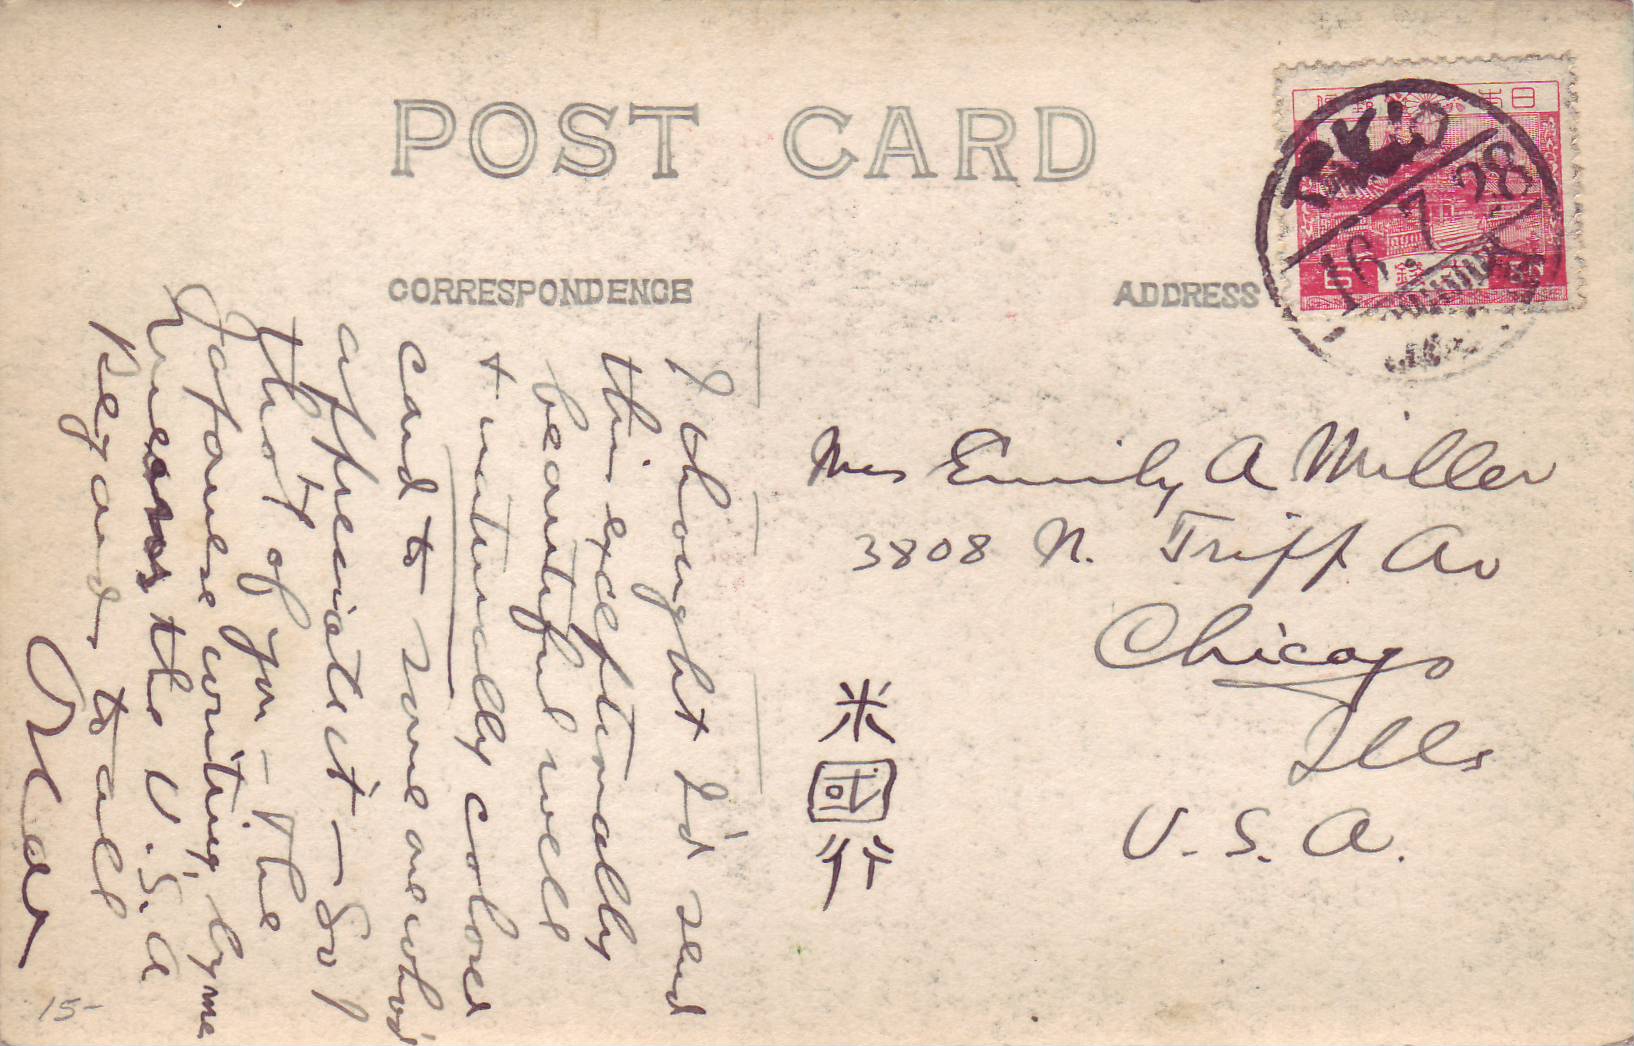 POST CARD
CORRESPONDENCE
ADDRESS
日本
16.7.28
I thought I'd send
this exceptionally
beautiful well
+ naturally colored
card to someone who'd
appreciate it – So I
thot of you – The
Japanese writing by me
means the U.S.A
Regards to all
Oscar
Mrs Emily A Miller
3808 N. Tripp Av
Chicago
Ills
U.S.A.
米
国
行
15-